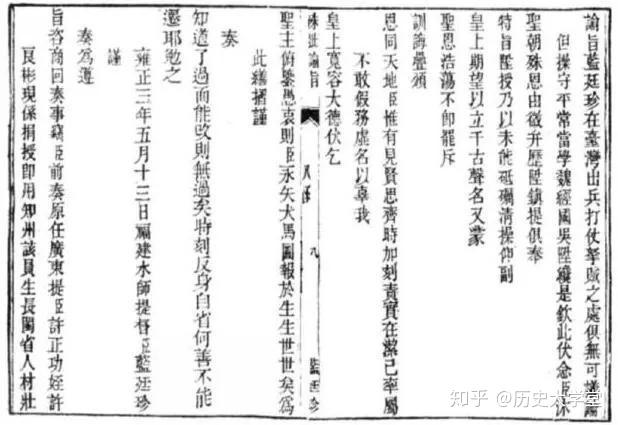 諭旨藍廷珍在臺灣出兵打仗拏賊之處俱無可議論
但操守平常當學魏經國吳陞纔是欽此伏念臣沐
聖朝殊恩由微升歷陞鎮提俱奉
特旨陞授乃以未能砥礪清操仰副
皇上期望以立千古聲名又蒙
聖恩浩蕩不卽罷斥
訓誨疊頒
恩同天地臣惟有見賢思齊時加刻責實在潔己率屬
不敢假務虛名以辜我
皇上寬容大德伏乞
硃批諭旨
九
藍廷珍
聖主俯鑒愚衷則臣永矢犬馬圖報於生生世世矣爲
此繕摺謹
奏
知道了過而能改則無過矣時刻反身自省何善不能
遷耶勉之
雍正三年五月十三日福建水師提督臣藍廷珍
謹
奏爲遵
旨咨商回奏事竊臣前奏原任廣東提臣許正功姪許
良彬現係捐授卽用知州該員生長閩省人材壯
知乎 @历史大学堂